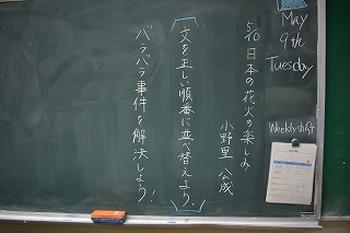 May
9th
Tuesday
Weekly
5/10 日本の花火の楽しみ
小野里 公成
「文を正しい順番に並べ替えよう。」
バラバラ事件を解決しよう!